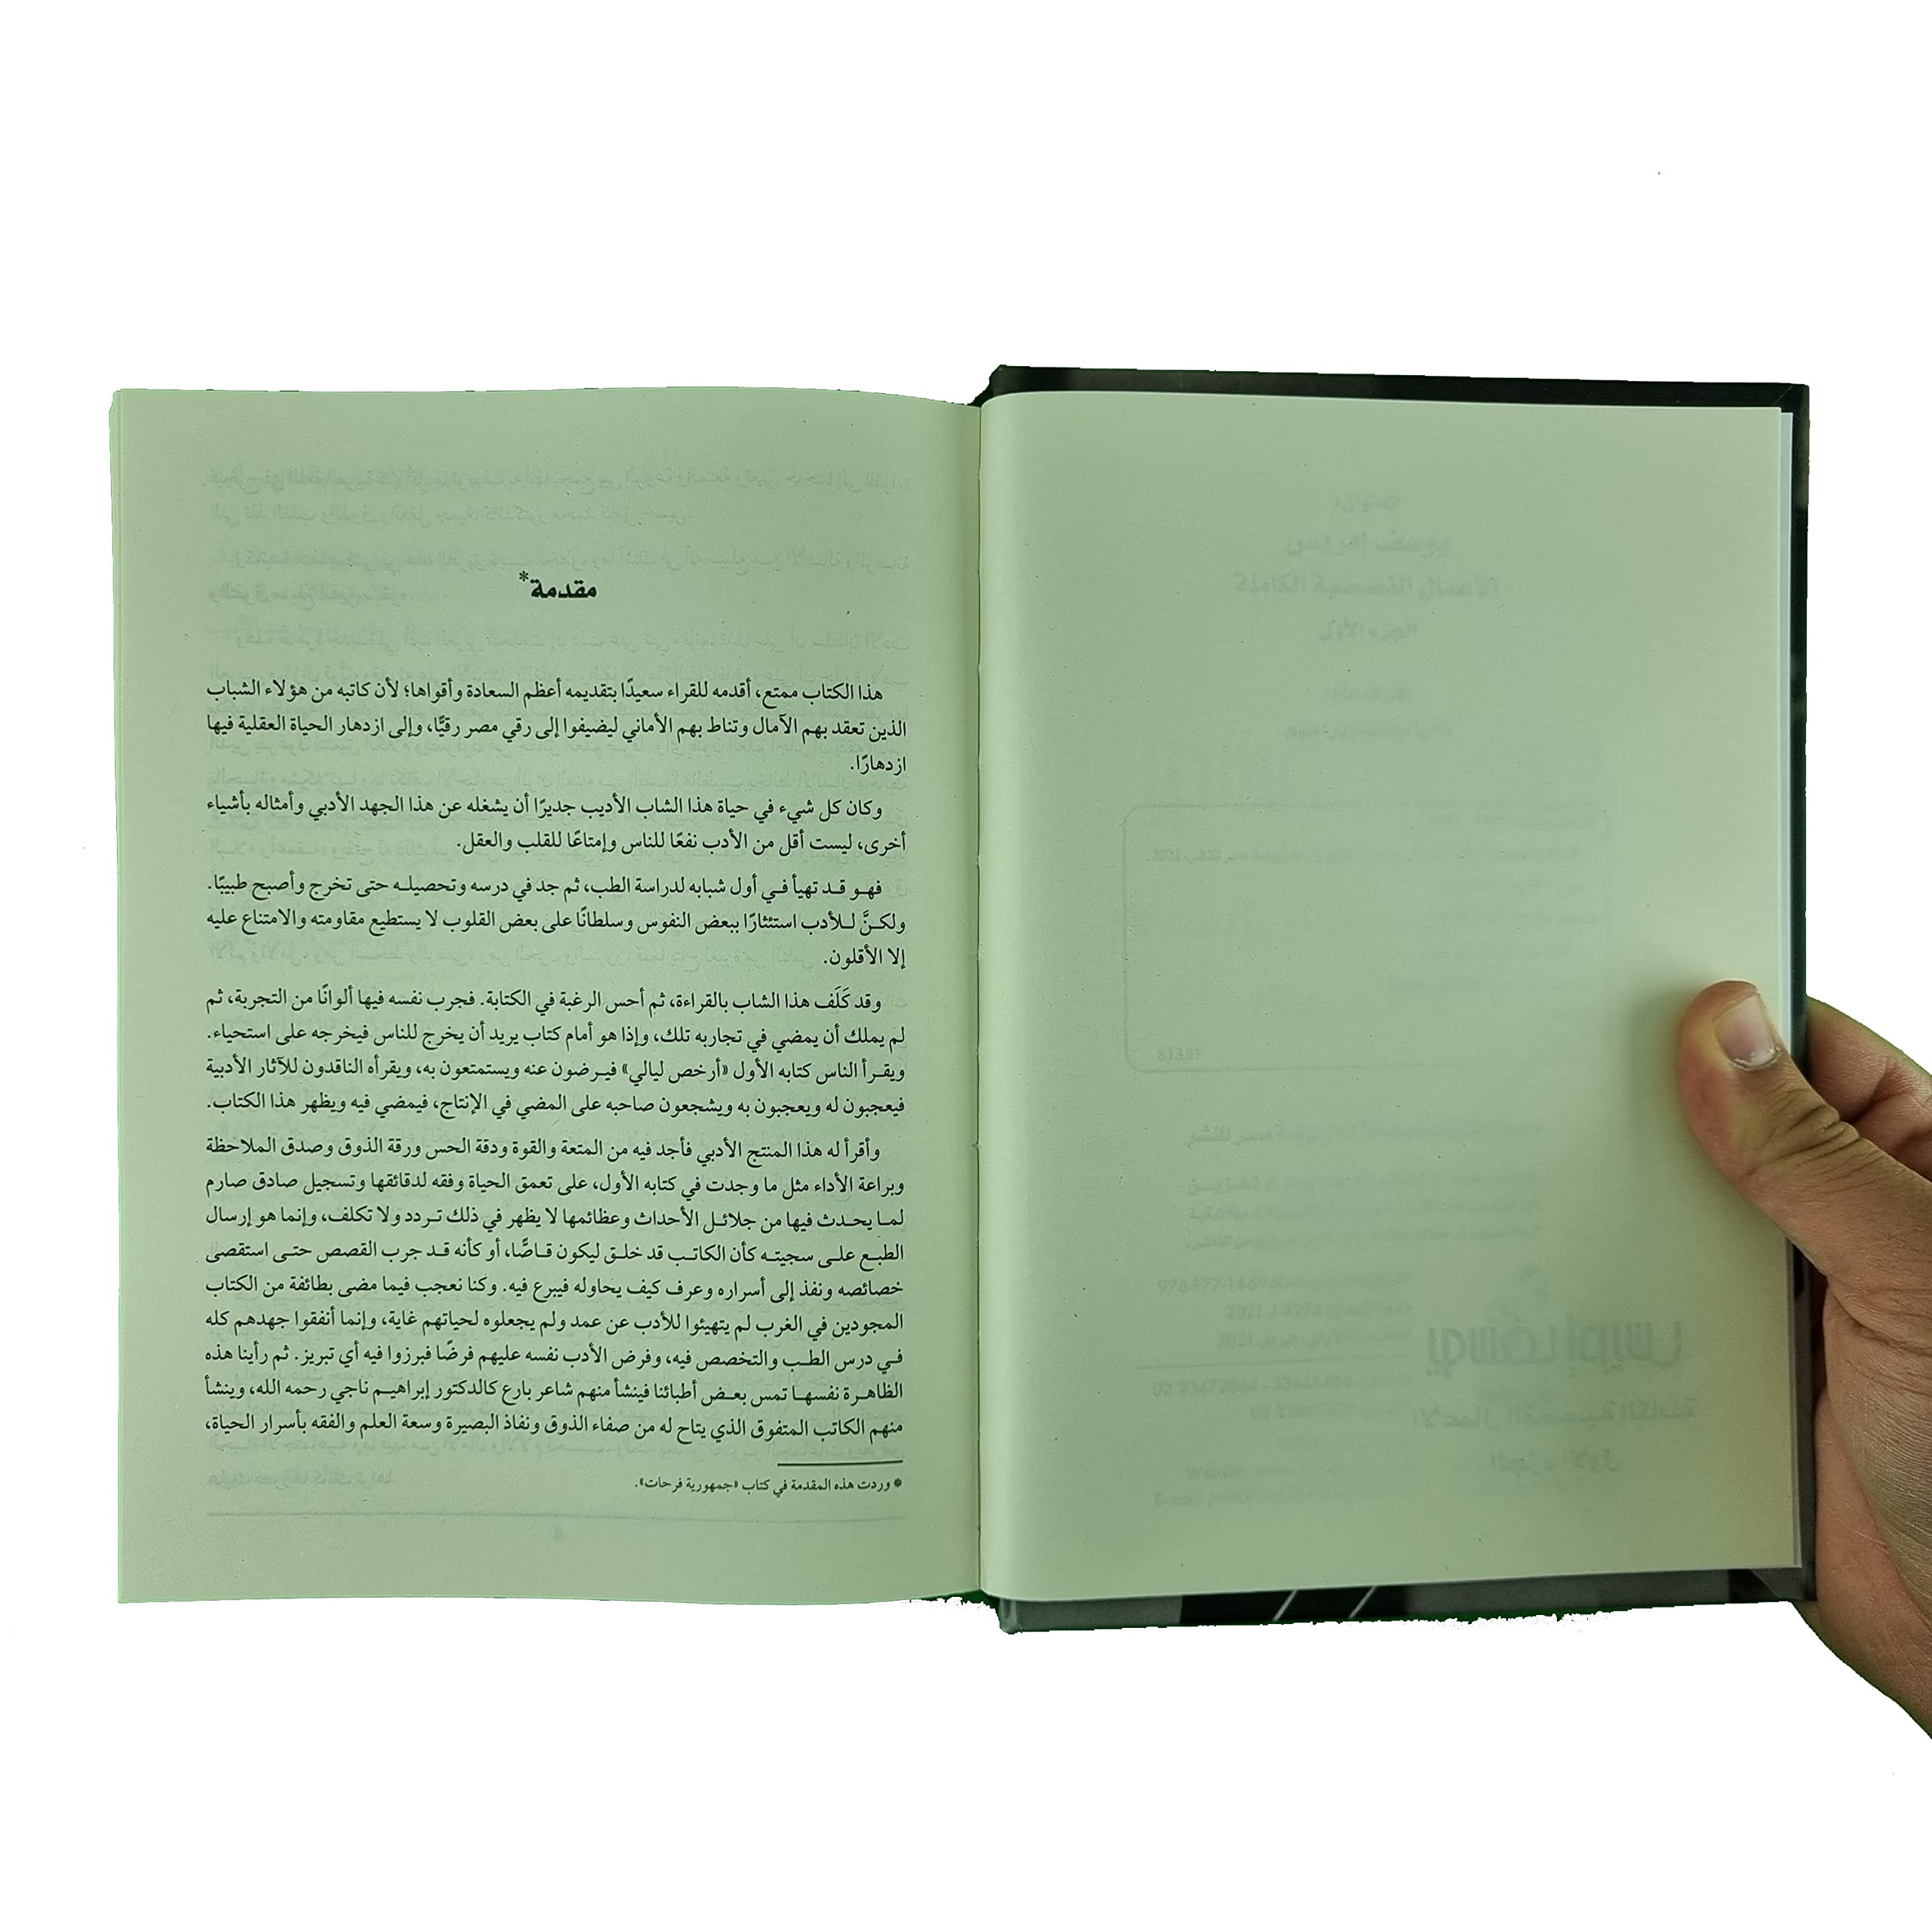 مقدمة*
هذا الكتاب ممتع، أقدمه للقراء سعيدًا بتقديمه أعظم السعادة وأقواها؛ لأن كاتبه من هؤلاء الشباب
الذين تعقد بهم الآمال وتناط بهم الأماني ليضيفوا إلى رقي مصر رقيًّا، وإلى ازدهار الحياة العقلية فيها
ازدهارًا.
وكان كل شيء في حياة هذا الشاب الأديب جديرًا أن يشغله عن هذا الجهد الأدبي وأمثاله بأشياء
أخرى، ليست أقل من الأدب نفعًا للناس وإمتاعًا للقلب والعقل.
فهو قد تهيأ في أول شبابه لدراسة الطب، ثم جد في درسه وتحصيله حتى تخرج وأصبح طبيبًا.
ولكنَّ للأدب استئثارًا ببعض النفوس وسلطانًا على بعض القلوب لا يستطيع مقاومته والامتناع عليه
إلا الأقلون.
وقد كَلَف هذا الشاب بالقراءة، ثم أحس الرغبة في الكتابة. فجرب نفسه فيها ألوانًا من التجربة، ثم
لم يملك أن يمضي في تجاربه تلك، وإذا هو أمام كتاب يريد أن يخرج للناس فيخرجه على استحياء.
ويقرأ الناس كتابه الأول «أرخص ليالي» فيرضون عنه ويستمتعون به، ويقرأه الناقدون للآثار الأدبية
فيعجبون له ويعجبون به ويشجعون صاحبه على المضي في الإنتاج، فيمضي فيه ويظهر هذا الكتاب.
وأقرأ له هذا المنتج الأدبي فأجد فيه من المتعة والقوة ودقة الحس ورقة الذوق وصدق الملاحظة
وبراعة الأداء مثل ما وجدت في كتابه الأول، على تعمق الحياة وفقه لدقائقها وتسجيل صادق صارم
لما يحدث فيها من جلائل الأحداث وعظائمها لا يظهر في ذلك تردد ولا تكلف، وإنما هو إرسال
الطبع على سجيته كأن الكاتب قد خلق ليكون قاصًّا، أو كأنه قد جرب القصص حتى استقصى
خصائصه ونفذ إلى أسراره وعرف كيف يحاوله فيبرع فيه. وكنا نعجب فيما مضى بطائفة من الكتاب
المجودين في الغرب لم يتهيئوا للأدب عن عمد ولم يجعلوه لحياتهم غاية، وإنما أنفقوا جهدهم كله
في درس الطب والتخصص فيه، وفرض الأدب نفسه عليهم فرضًا فبرزوا فيه أي تبريز. ثم رأينا هذه
الظاهرة نفسها تمس بعض أطبائنا فينشأ منهم شاعر بارع كالدكتور إبراهيم ناجي رحمه الله، وينشأ
منهم الكاتب المتفوق الذي يتاح له من صفاء الذوق ونفاذ البصيرة وسعة العلم والفقه بأسرار الحياة،
* وردت هذه المقدمة في كتاب «جمهورية فرحات».